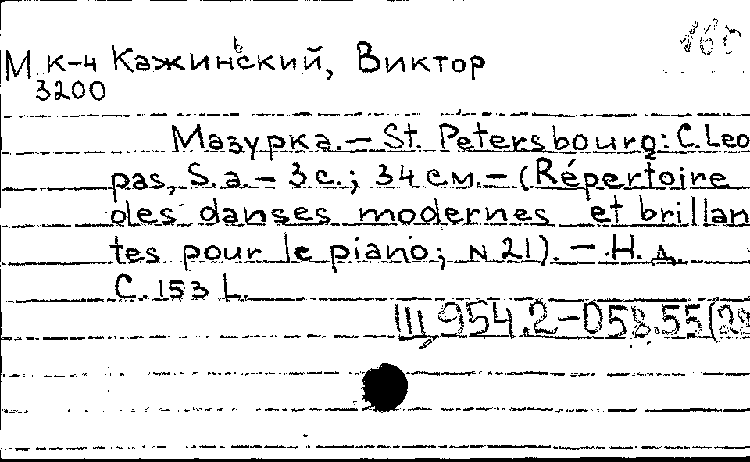 160
М К-4 Кажинъский, Виктор
3200
Мазурка. — St. Petersbourg: C. Leo
pas, S. a. — 3 с.; 34 см. — (Répertoire
des danses modernes et brillan
tes pour le piano; N 21). — Н. д.
C. 153 L.
III 954.2-058.55(28